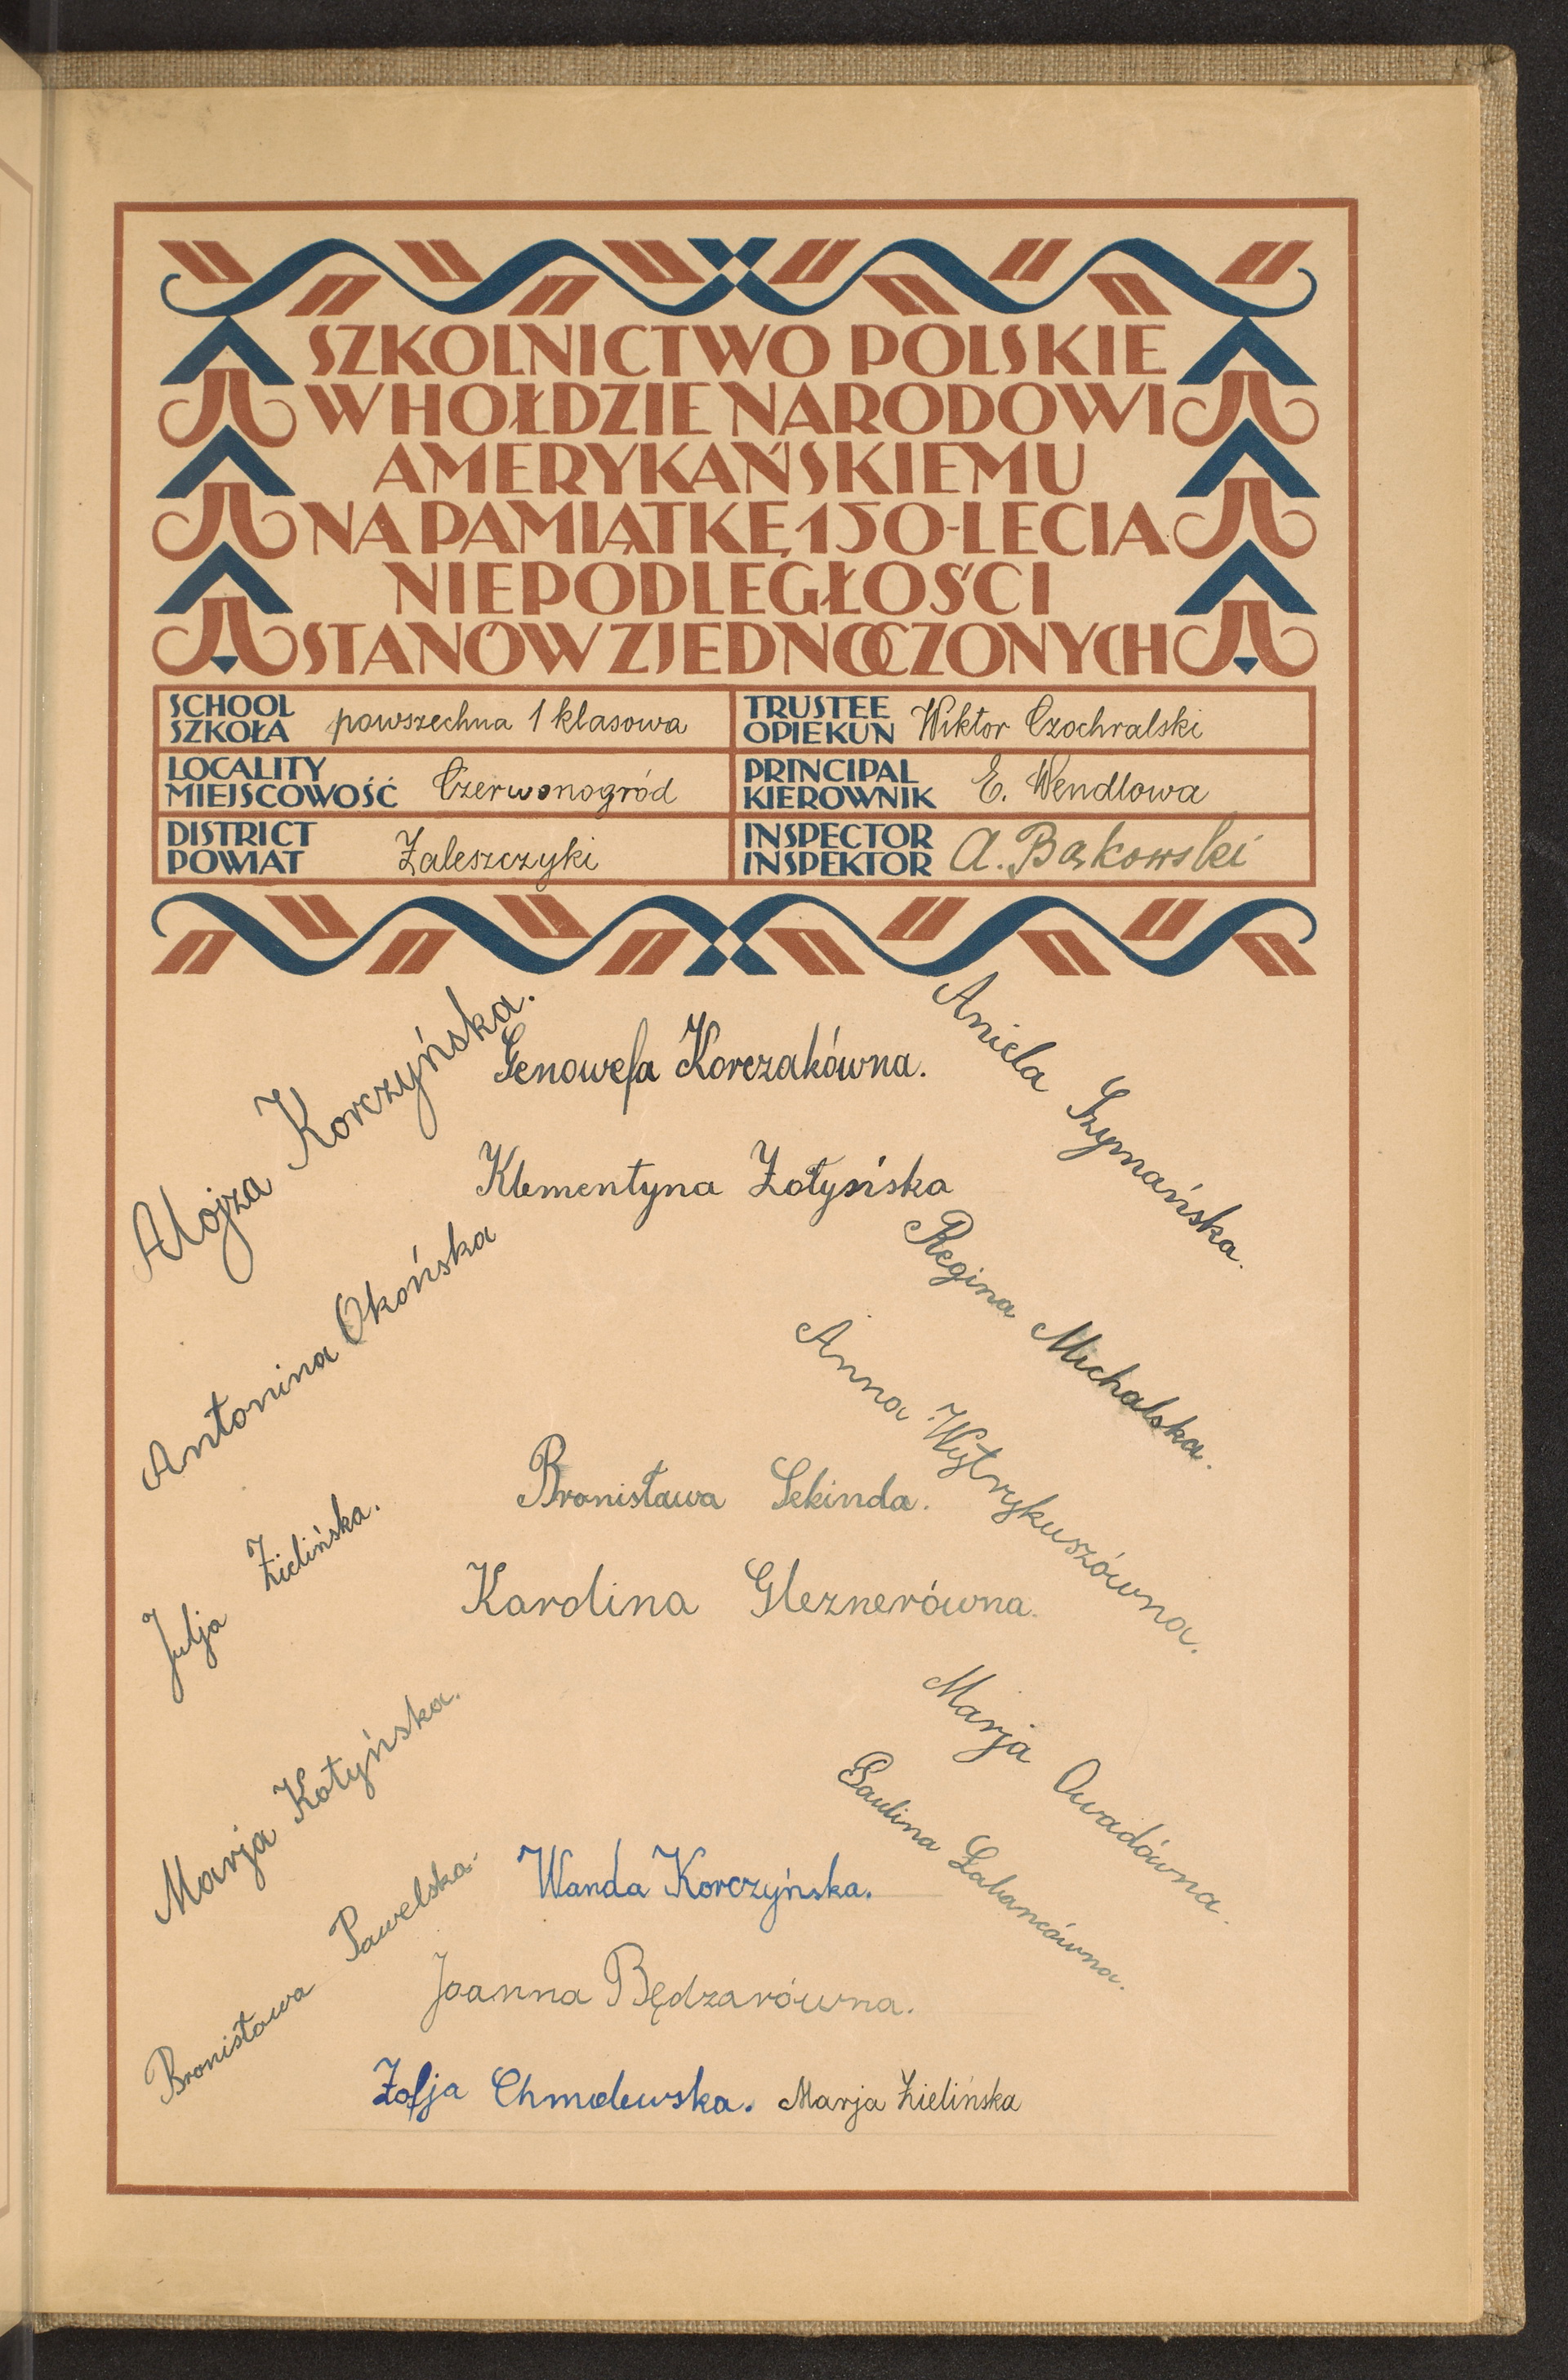 SZKOLNICTWO POLSKIE
W HOŁDZIE NARODOWI
AMERYKAŃSKIEMU
NA PAMIĄTKĘ 150-LECIA
NIEPODLEGŁOŚCI
STANÓW ZJEDNOCZONYCH
SCHOOL
SZKOŁA powszechna 1 klasowa
TRUSTEE
OPIEKUN Wiktor Czochralski
LOCALITY
MIEJSCOWOŚĆ Czerwonogród
PRINCIPAL
KIEROWNIK E. Wendlowa
DISTRICT
POWIAT Zaleszczyki
INSPECTOR
INSPEKTOR A. Bąkowski
Alojza Korczyńska.
Genowefa Korczakówna.
Aniela Szymańska.
Klementyna Zołyńska
Antonina Okońska
Regina Michalska.
Anna Wytrykuszówna.
Bronisława Sekinda.
Julja Zielińska.
Karolina Gleznerówna.
Marja Kotyńska.
Marja Owadówna.
Paulina Łabancówna.
Wanda Korczyńska.
Bronisława Pawelska.
Joanna Będzarówna.
Zofja Chmelewska. Marja Zielińska